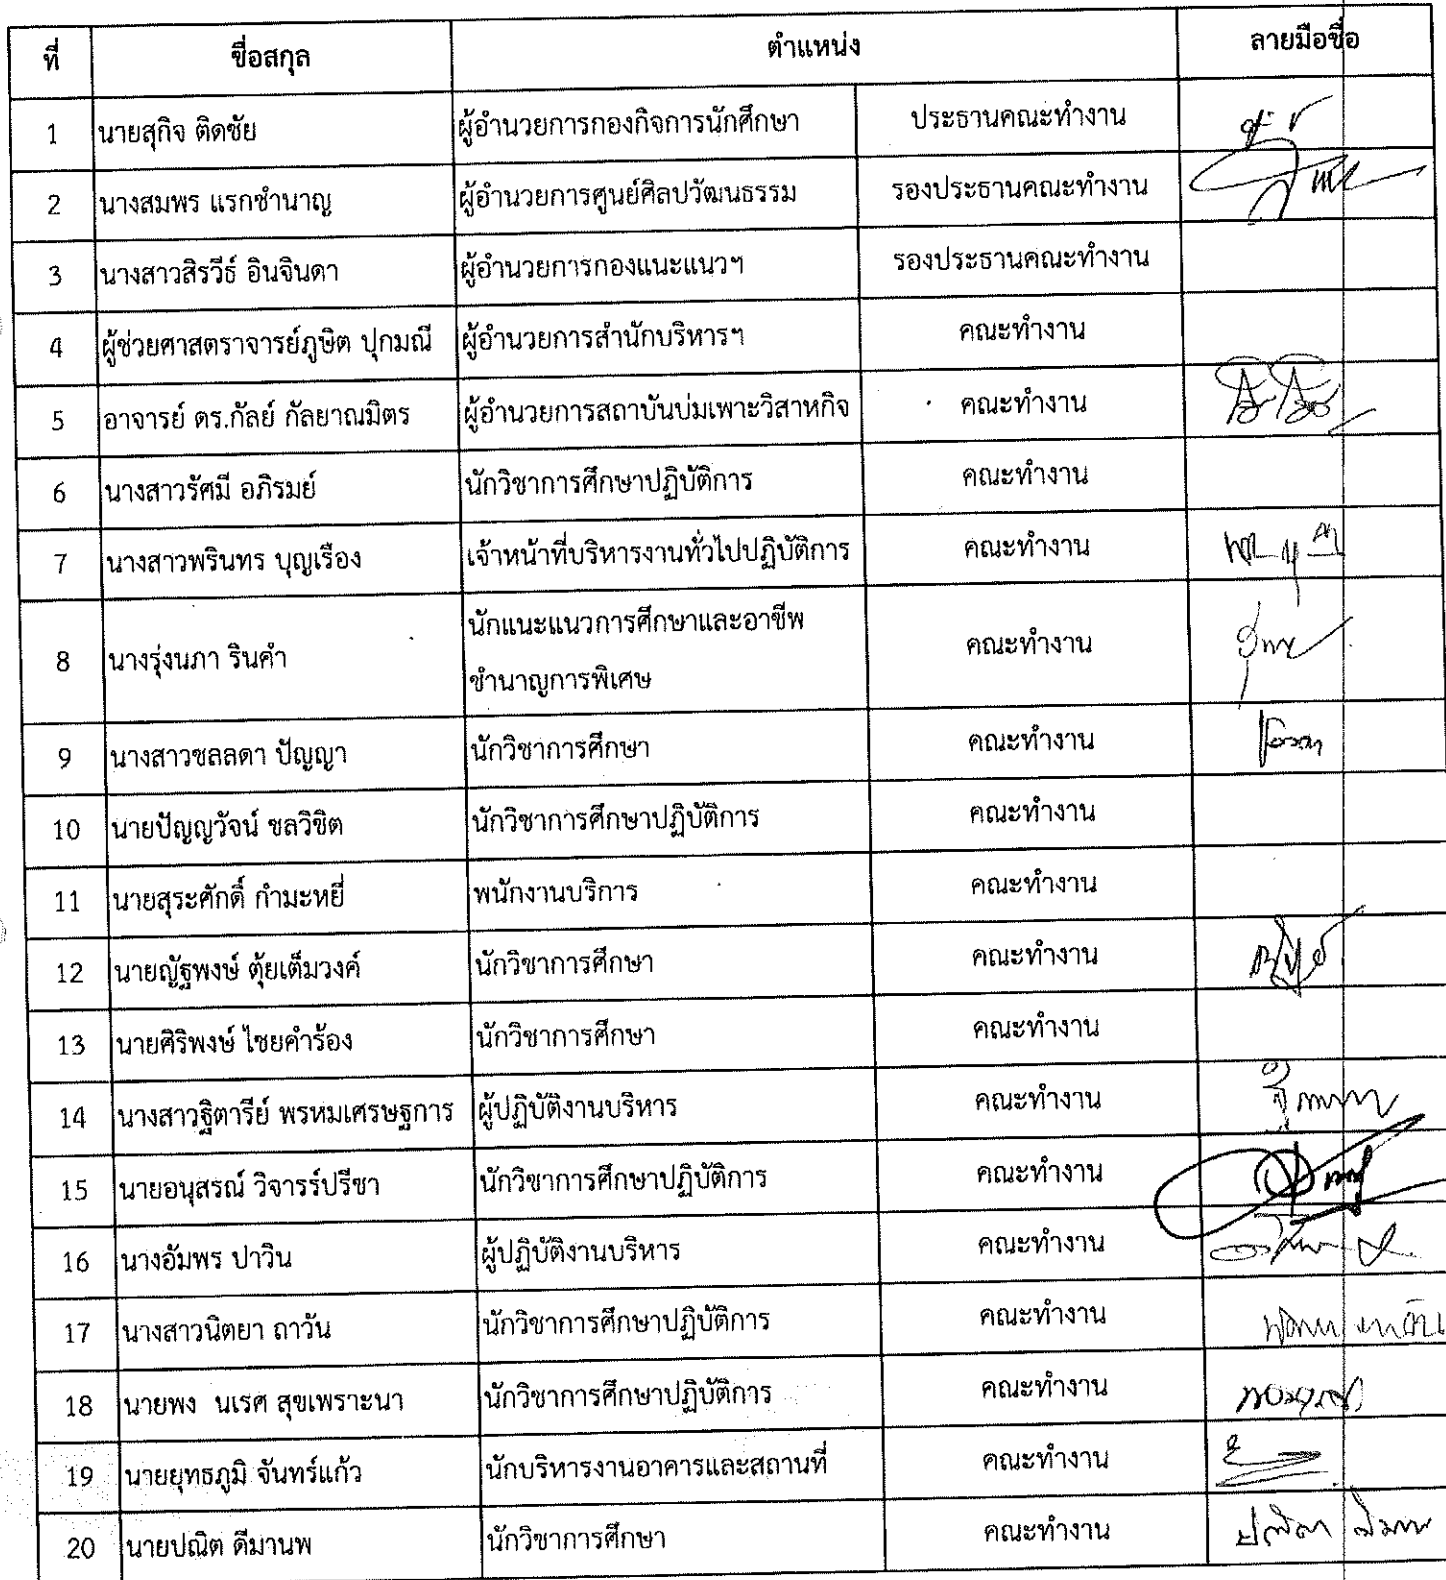 ที่ ชื่อสกุล ตำแหน่ง ลายมือชื่อ
1 นายสุกิจ ติดชัย ผู้อำนวยการกองกิจการนักศึกษา ประธานคณะทำงาน
2 นางสมพร แรกชำนาญ ผู้อำนวยการศูนย์ศิลปวัฒนธรรม รองประธานคณะทำงาน
3 นางสาวสิรวีธ์ อินจินดา ผู้อำนวยการกองแนะแนวฯ รองประธานคณะทำงาน
4 ผู้ช่วยศาสตราจารย์ภูษิต ปุกมณี ผู้อำนวยการสำนักบริหารฯ คณะทำงาน
5 อาจารย์ ดร.กัลย์ กัลยาณมิตร ผู้อำนวยการสถาบันบ่มเพาะวิสาหกิจ คณะทำงาน
6 นางสาวรัศมี อภิรมย์ นักวิชาการศึกษาปฏิบัติการ คณะทำงาน
7 นางสาวพรินทร บุญเรือง เจ้าหน้าที่บริหารงานทั่วไปปฏิบัติการ คณะทำงาน
8 นางรุ่งนภา รินคำ นักแนะแนวการศึกษาและอาชีพ คณะทำงาน
ชำนาญการพิเศษ
9 นางสาวชลลดา ปัญญา นักวิชาการศึกษา คณะทำงาน
10 นายปัญญวัจน์ ชลวิชิต นักวิชาการศึกษาปฏิบัติการ คณะทำงาน
11 นายสุระศักดิ์ กำมะหยี่ พนักงานบริการ คณะทำงาน
12 นายญัฐพงษ์ ตุ้ยเต็มวงค์ นักวิชาการศึกษา คณะทำงาน
13 นายศิริพงษ์ ไชยคำร้อง นักวิชาการศึกษา คณะทำงาน
14 นางสาวฐิตารีย์ พรหมเศรษฐการ ผู้ปฏิบัติงานบริหาร คณะทำงาน
15 นายอนุสรณ์ วิจารร์ปรีชา นักวิชาการศึกษาปฏิบัติการ คณะทำงาน
16 นางอัมพร ปาวิน ผู้ปฏิบัติงานบริหาร คณะทำงาน
17 นางสาวนิตยา ถาวัน นักวิชาการศึกษาปฏิบัติการ คณะทำงาน
18 นายพง นเรศ สุขเพราะนา นักวิชาการศึกษาปฏิบัติการ คณะทำงาน
19 นายยุทธภูมิ จันทร์แก้ว นักบริหารงานอาคารและสถานที่ คณะทำงาน
20 นายปณิต ดีมานพ นักวิชาการศึกษา คณะทำงาน